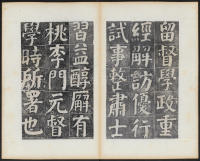 留督學政重
經解訪優行
試事整肅士
習益醇厚有
桃李門元督
學時所署也